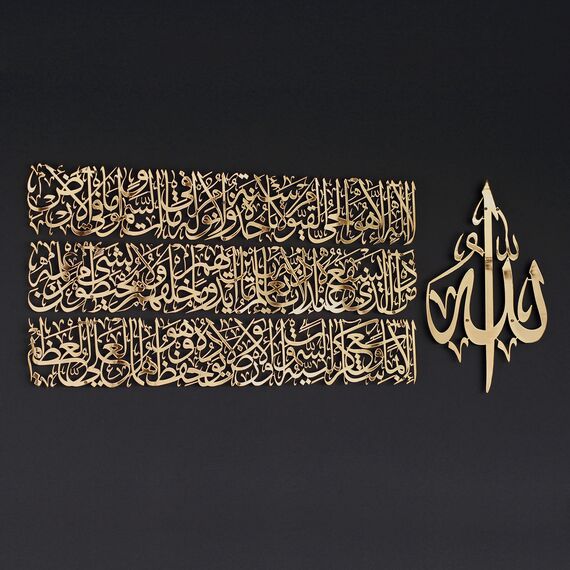 الله
لا إله إلا هو الحي القيوم لا تأخذه سنة ولا نوم له ما في السموت وما في الأرض
من ذا الذي يشفع عنده إلا بإذنه يعلم ما بين أيديهم وما خلفهم ولا يحيطون بشيء من علمه
إلا بما شاء وسع كرسيه السموت والأرض ولا يؤده حفظهما وهو العلي العظيم